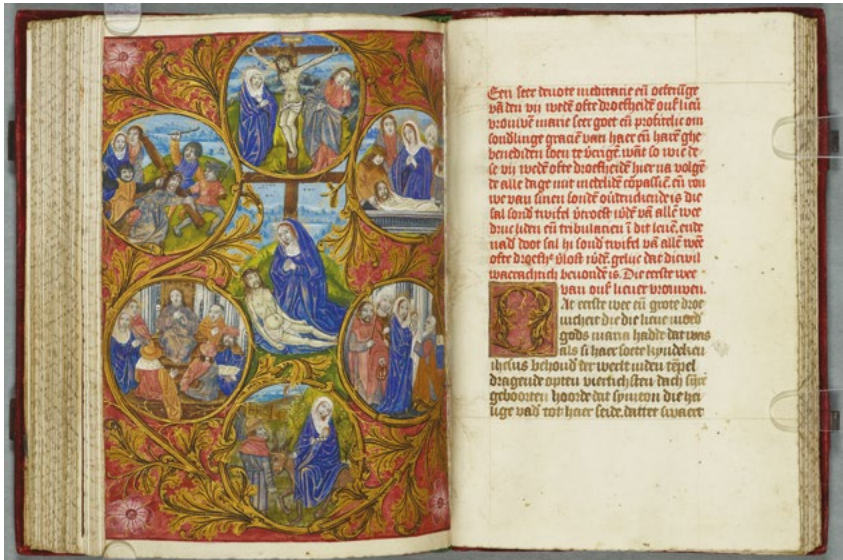 Een seer deuote meditacie eñ oefeïge
vã den vij wedẽ ofte droefheidẽ ouſ lieu
vrouwẽ marie seer goet eñ profitelic om
sondlinge graciẽ van haer eñ harẽ ghe
benediden soen te v̾crigẽ. wãt so wie de
se vij wedẽ ofte droefheidẽ hier na volgẽ
de alle dage mit īnẽlikẽ cõpassiẽ. eñ rou
we van sinen sondẽ ou̾dencken̄de is die
sal sond twifel v̾troest wdẽ vã allẽ wee
druc liden eñ tribulacien ī dit leuẽ. ende
nad doot sal hi sond twifel vã allẽ weẽ
ofte droefhẽ v̾lost wdẽ. gelijc dat dicwil
waerachtich beuondẽ is. Die eerste wee
van onſ lieuer vrouwen.
At eerste wee eñ grote droe
nicheit die die lieue moed
gods maria hadde dat was
als si haer soete kyndeken
ihesus behoud der werlt inden tẽpel
dragende opten viertichsten dach sijre
geboorten hoorde dat symeon die hei
lige vad tot haer seide. datter swaert